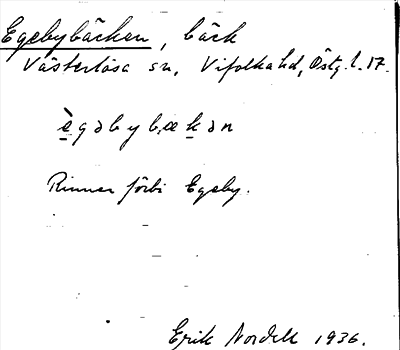 Egebybäcken, bäck
Västerlösa sn, Vifolka hd, Östg. l. 17.
ègəbybækən
Rinner förbi Egeby.
Erik Nordell 1936.